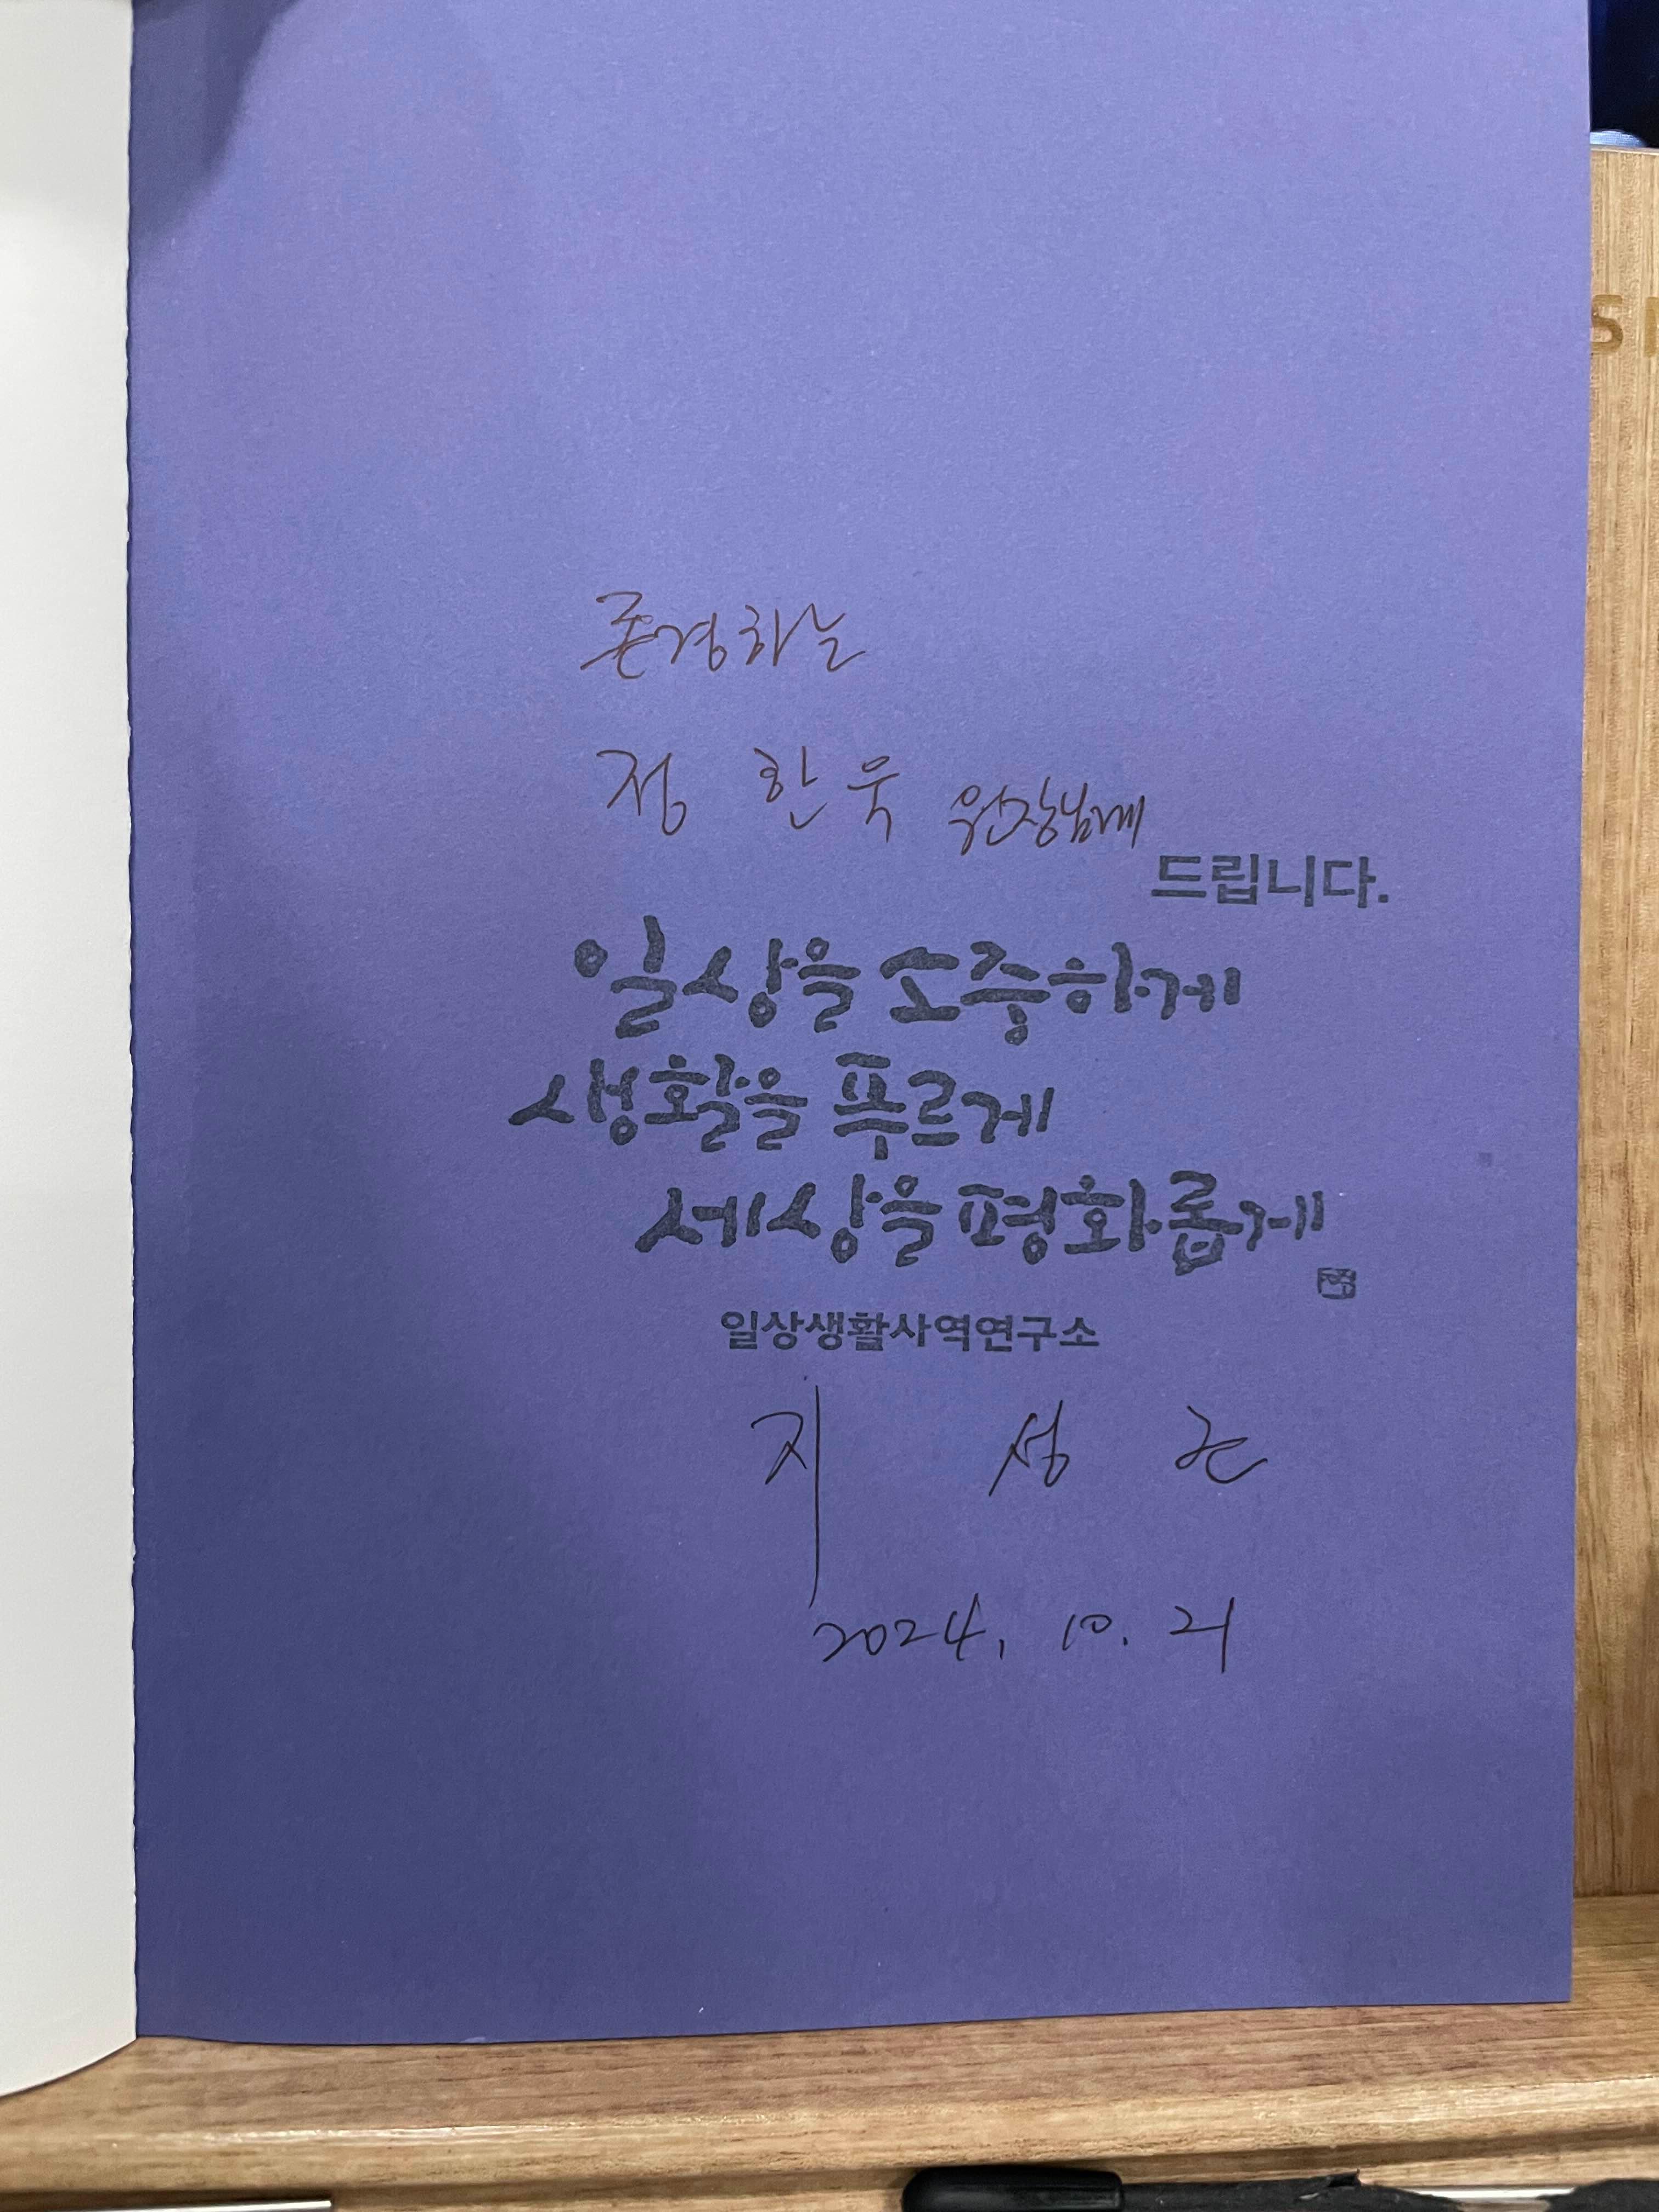 존경하는
정 한 욱 원장님께
드립니다.
일상을 소중하게
생활을 푸르게
세상을 평화롭게
일상생활사역연구소
지 성 근
2024. 10. 21
S